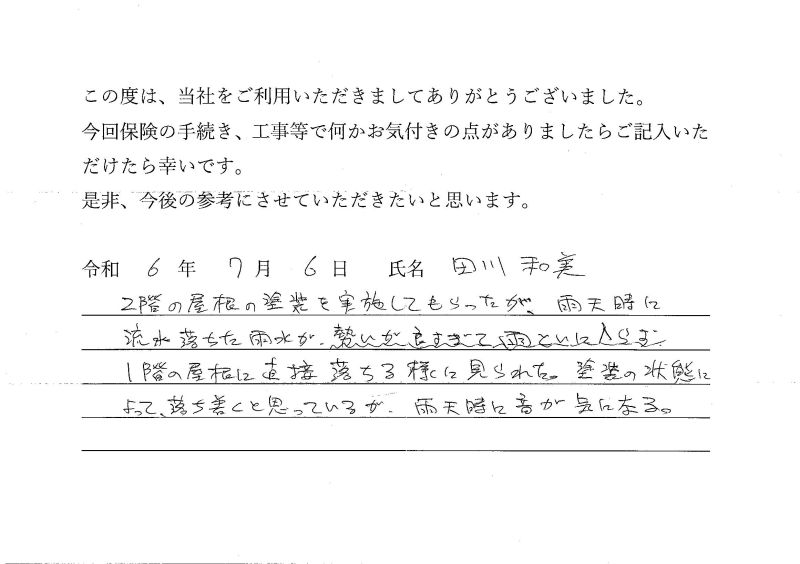 この度は、当社をご利用いただきましてありがとうございました。
今回保険の手続き、工事等で何かお気付きの点がありましたらご記入いた
だけたら幸いです。
是非、今後の参考にさせていただきたいと思います。
令和 6 年 7 月 6 日 氏名 田川 和実
2階の屋根の塗装を実施してもらったが、雨天時に
流れ落ちた雨水が、勢いが良すぎて、雨といに入らず
1階の屋根に直接落ちる様に見られた。塗装の状態に
よって、落ち着くと思っているが、雨天時に音が気になる。